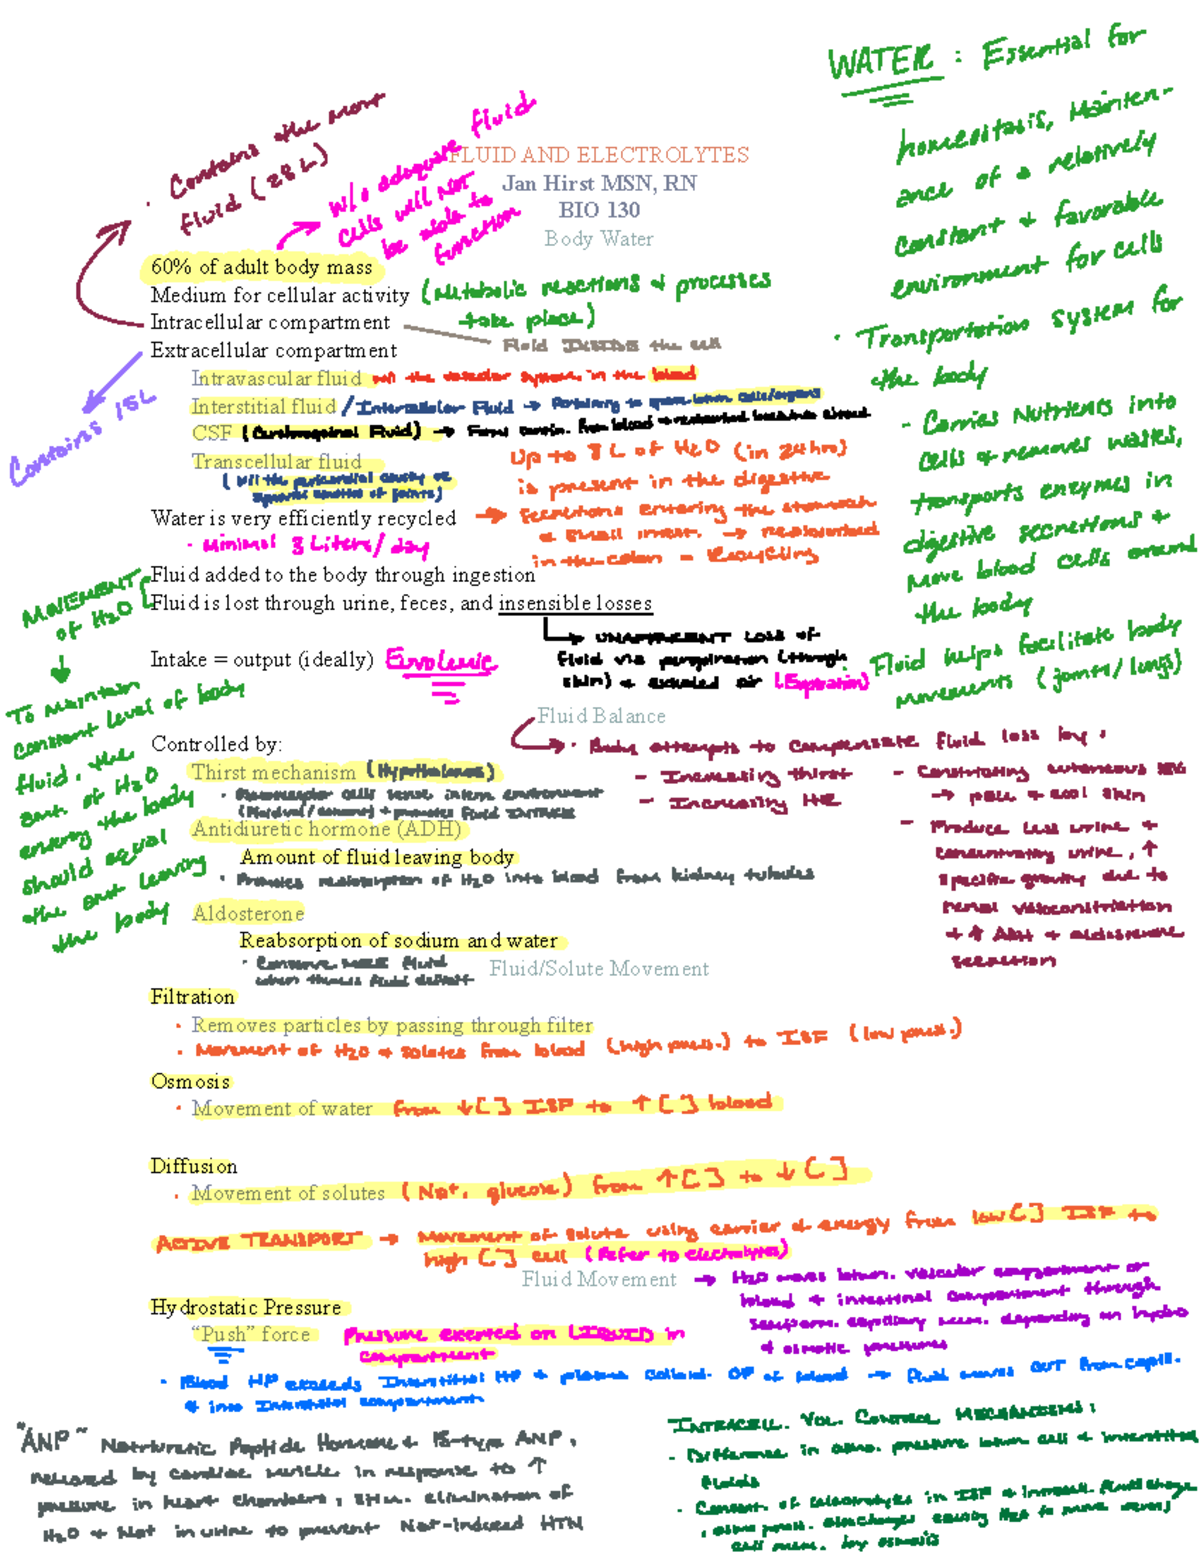 WATER : Essential for
homeostasis, Mainten-
ance of a relatively
constant + favorable
environment for cells
· Transportation System for
the body
- Carries Nutrients into
cells + removes wastes,
transports enzymes in
digestive secretions +
move blood cells around
the body
· Fluid helps facilitate body
movements (joints/lungs)
· Contains the most
fluid (28L)
w/o adequate fluid
cells will NOT
be able to
function
FLUID AND ELECTROLYTES
Jan Hirst MSN, RN
BIO 130
Body Water
60% of adult body mass
Medium for cellular activity (Metabolic reactions + processes
take place)
Intracellular compartment
Fluid INSIDE the cell
Extracellular compartment
Contains 15L
Intravascular fluid w/i the vascular system, in the blood
Interstitial fluid / Intercellular Fluid → Pertaining to space betwn. cells/organs
CSF (Cerebrospinal Fluid) →
Transcellular fluid
(w/i the pericardial cavity or
synovial cavities of joints)
Up to 8 L of H2O (in 24hrs)
is present in the digestive
secretions entering the stomach
& small intest. → reabsorbed
in the colon = Recycling
Water is very efficiently recycled →
· Minimal 3 Liters/day
MOVEMENT
of H2O
Fluid added to the body through ingestion
Fluid is lost through urine, feces, and insensible losses
→ UNAPPARENT Loss of
fluid via perspiration (through
skin) + exhaled air (Expiration)
Intake = output (ideally) Euvolemic
To maintain
constant level of body
fluid, the
amt. of H2O
entering the body
should equal
the amt leaving
the body
Fluid Balance
· Body attempts to compensate fluid loss by:
- Increasing thirst
- Increasing HR
- Constricting cutaneous
→ pale + cool skin
- Produce less urine +
concentrating urine, ↑
specific gravity due to
renal vasoconstriction
+ ↑ ADH + aldosterone
secretion
Controlled by:
Thirst mechanism (Hypothalamus)
· Osmoreceptor cells sense intern. environment
+ promotes fluid INTAKE
Antidiuretic hormone (ADH)
Amount of fluid leaving body
· Promotes reabsorption of H2O into blood from kidney tubules
Aldosterone
Reabsorption of sodium and water
· Conserve MORE fluid
when there's fluid deficit
Fluid/Solute Movement
Filtration
· Removes particles by passing through filter
· Movement of H2O + solutes from blood (high press.) to ISF (low press.)
Osmosis
· Movement of water from ↓[ ] ISF to ↑[ ] blood
Diffusion
· Movement of solutes (Na+, glucose) from ↑[ ] to ↓[ ]
ACTIVE TRANSPORT → Movement of solute using carrier + energy from low[ ] ISF to
high [ ] cell (Refer to electrolytes)
Fluid Movement → H2O moves betwn. vascular compartment or
blood + interstitial compartment through
semiperm. capillary mem. depending on hydro
+ osmotic pressures
Hydrostatic Pressure
“Push” force Pressure exerted on LIQUID in
compartment
· Blood HP exceeds Interstitial HP + plasma Colloid. OP of blood → fluid moves OUT from capill.
+ into Interstitial compartment
"ANP" Natriuretic Peptide Hormone + B-type ANP,
released by cardiac muscle in response to ↑
pressure in heart chambers, stim. elimination of
H2O + Na+ in urine to prevent Na+-induced HTN
INTRACELL. VOL. CONTROL MECHANISMS:
- Difference in osmo. pressure betwn cell + interstitial
fluids
- Concent. of electrolytes in ISF + Intracell. fluid change
, osmo press. also changes causing H2O to move across
cell mem. by osmosis